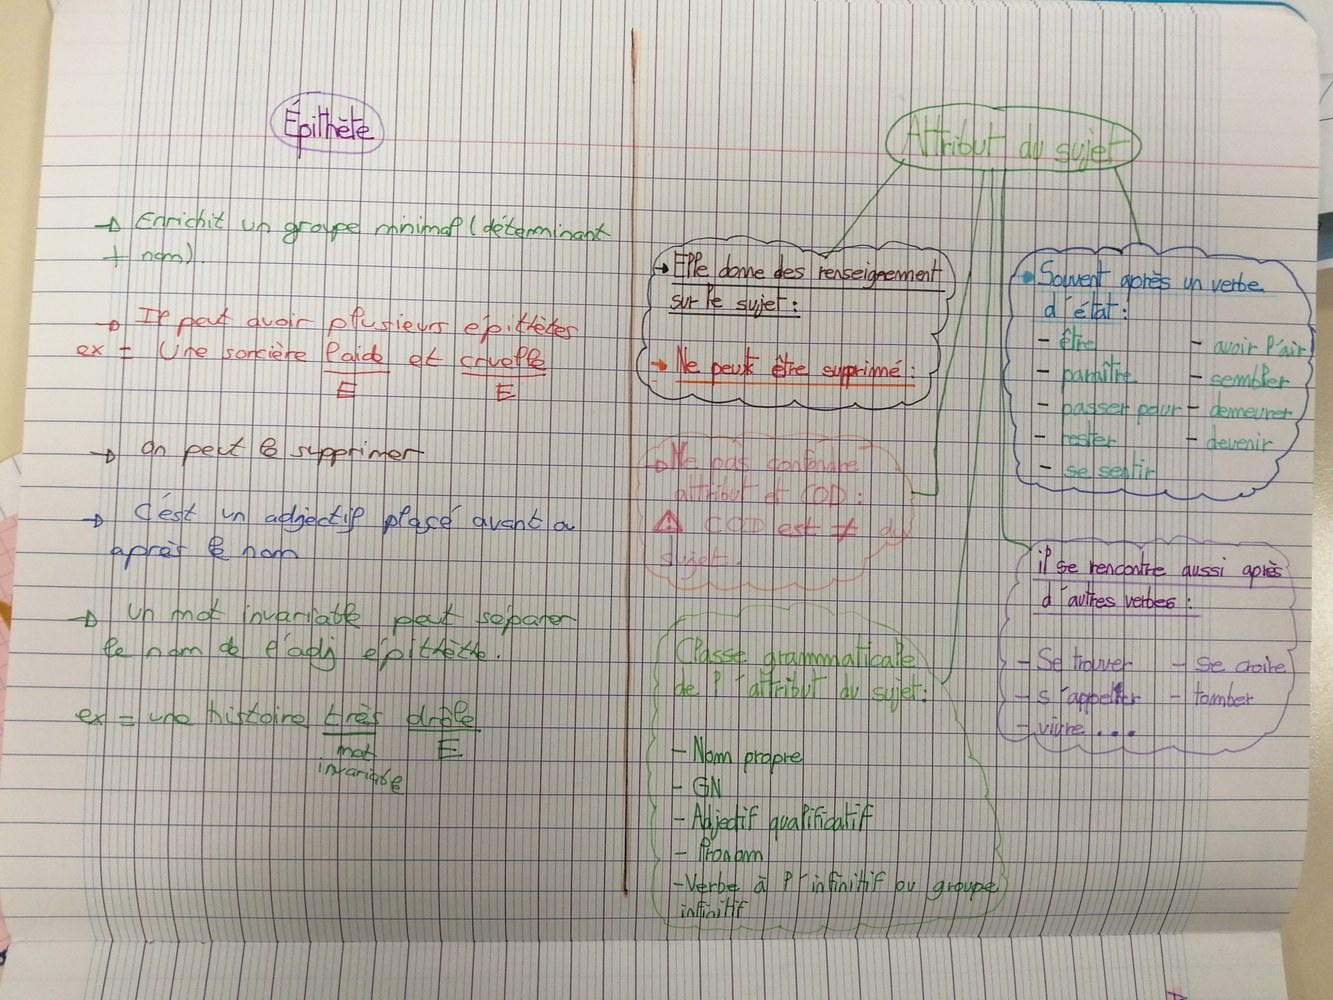 Épithète
→ Enrichit un groupe minimal (déterminant
+ nom).
→ Il peut avoir plusieurs épithètes
ex = Une sorcière laide et cruelle
E E
→ On peut le supprimer
→ C'est un adjectif placé avant ou
après le nom
→ Un mot invariable peut séparer
le nom de l'adj épithète.
ex = une histoire très drôle
mot E
invariable
Attribut du sujet
→ Elle donne des renseignement
sur le sujet :
→ Ne peut être supprimé :
→ Ne pas confondre
attribut et COD :
⚠ COD est ≠ du
sujet.
Classe grammmaticale
de l'attribut du sujet :
- Nom propre
- GN
- Adjectif qualificatif
- Pronom
- Verbe à l'infinitif ou groupe
infinitif
→ Souvent après un verbe
d'état :
- être - avoir l'air
- paraître - sembler
- passer pour - demeurer
- rester - devenir
- se sentir
il se rencontre aussi après
d'autres verbes :
- Se trouver - Se croire
- s'appeller - tomber
- vivre ...